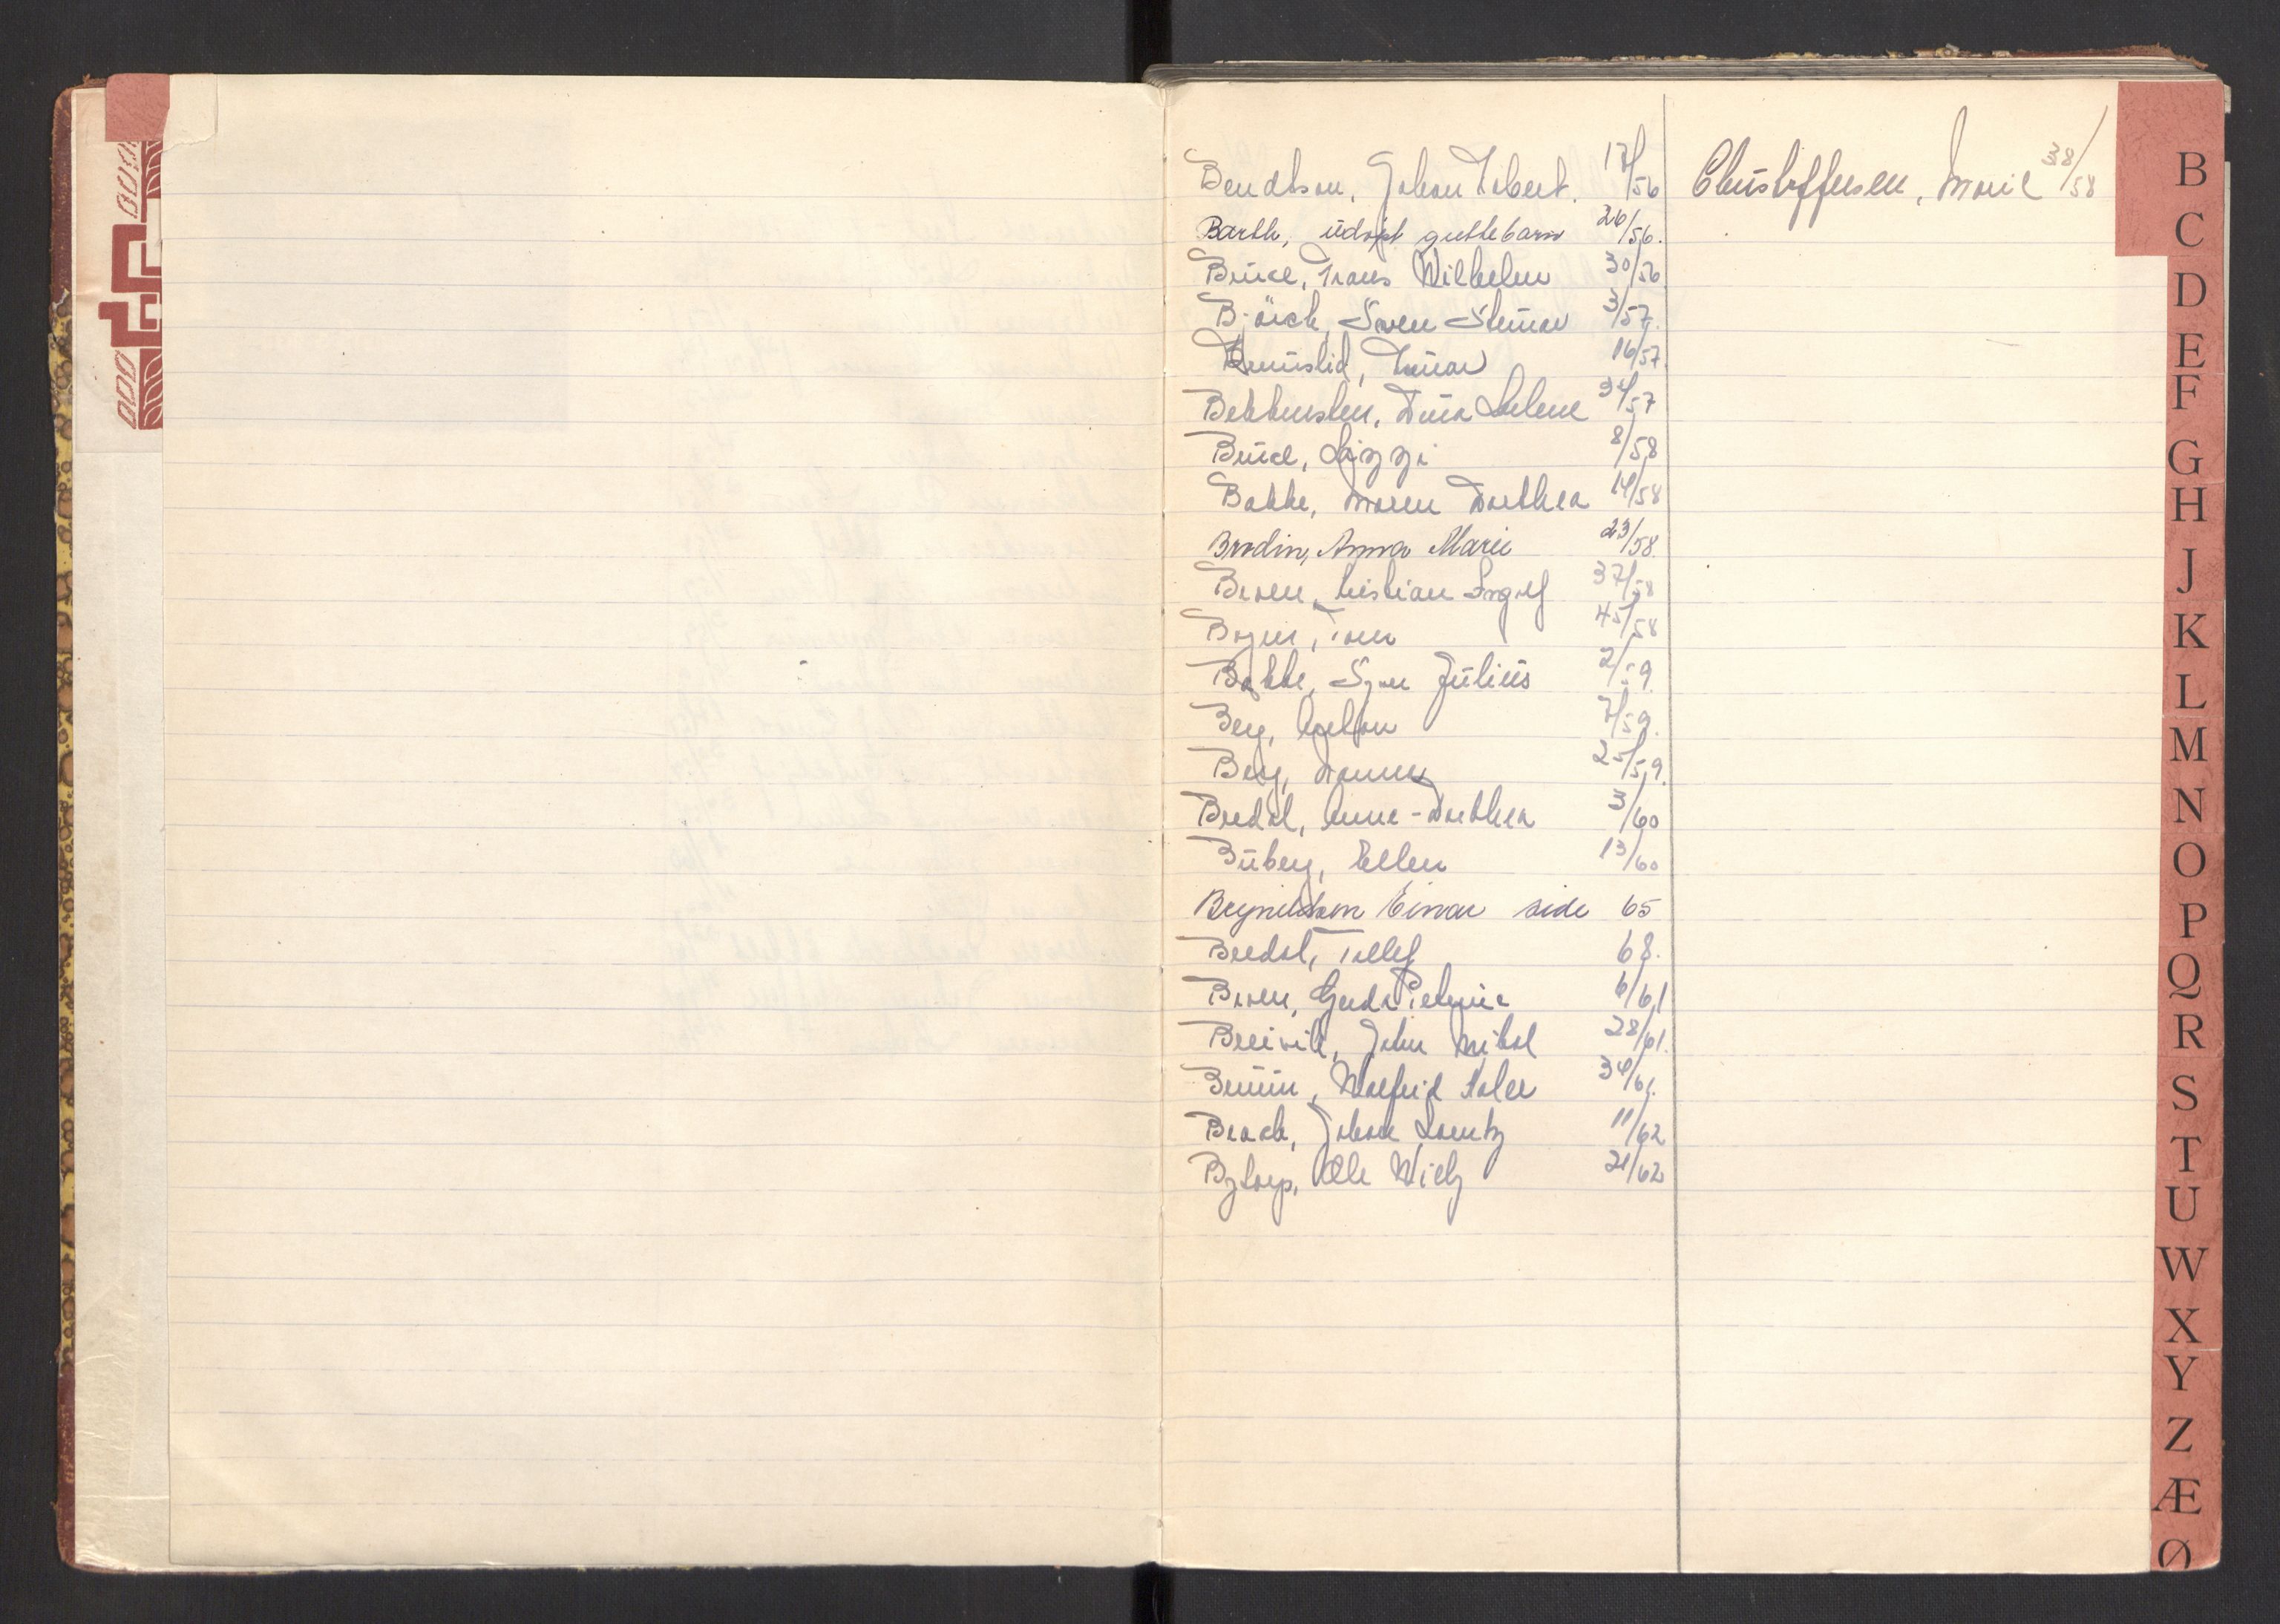 Bendtson, Johan Hobert. 17/56
Barth, udøpt guttebarn 26/56.
Bruce, Frans Wilhelm 30/56
Björck, Sven Steinar 3/57.
Brunslid, Einar 16/57.
Bekkensten, Dina Helene 34/57
Bruce, Lizzi 8/58
Bakke, Maren Dorthea 14/58
Brodin, Anna Marie 23/58.
Broen, Kristian Ingolf 37/58
Bojer, Tom 45/58
Bakke, Syver Julius 2/59.
Berg, 7/59.
Berg, 25/59.
Bredal, Anne-Dorthea 3/60
Buberg, Ellen 13/60
Brynildsen Einar side 65
Bredal, Tollef 68.
Broen, Gerda Petrine 6/61
Breivik, John Mikal 28/61.
Bruun, Walfrid 34/61.
Brack, Johan Lorentz 11/62
Bytorp, Ole Wiely 21/62
Christoffersen, Marie 38/58
B
C
D
E
F
G
H
J
K
L
M
N
O
P
Q
R
S
T
U
W
X
Y
Z
Æ
Ø